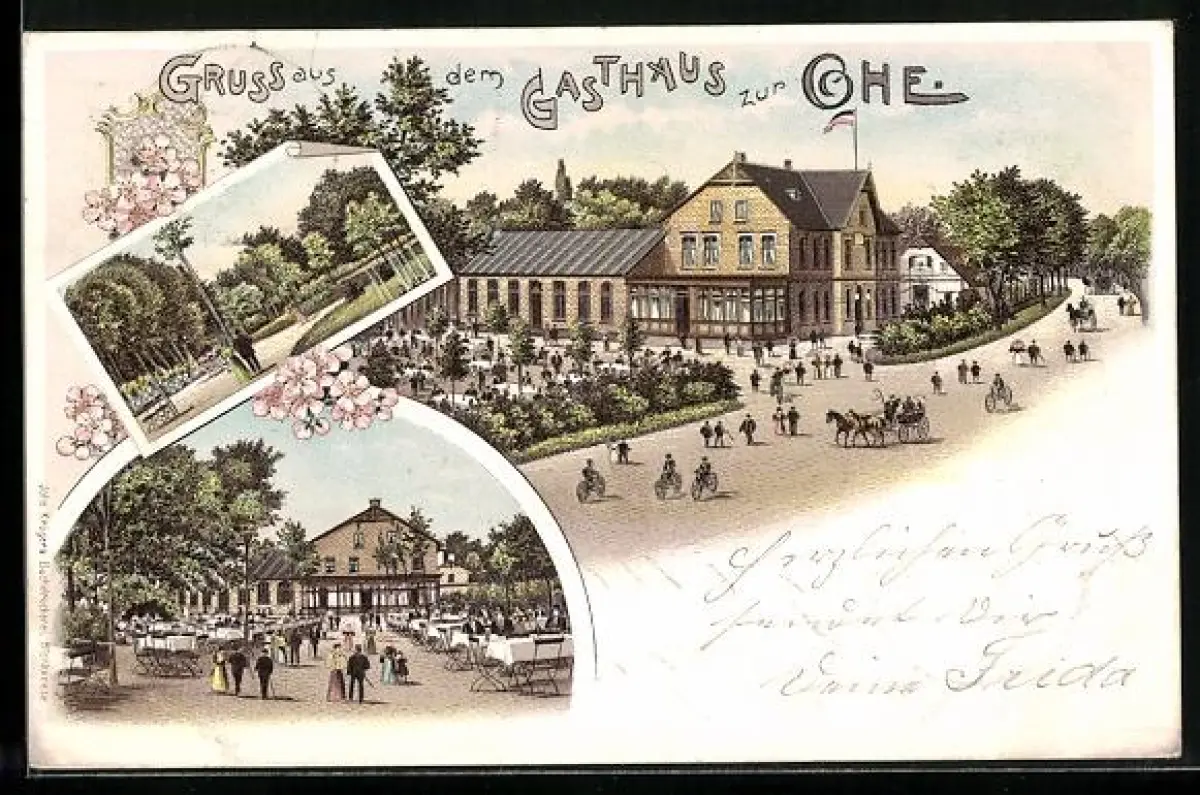 GRUSS aus dem GASTHAUS zur OHE.
Herzlichen Gruß
sendet Dir
Deine Frida